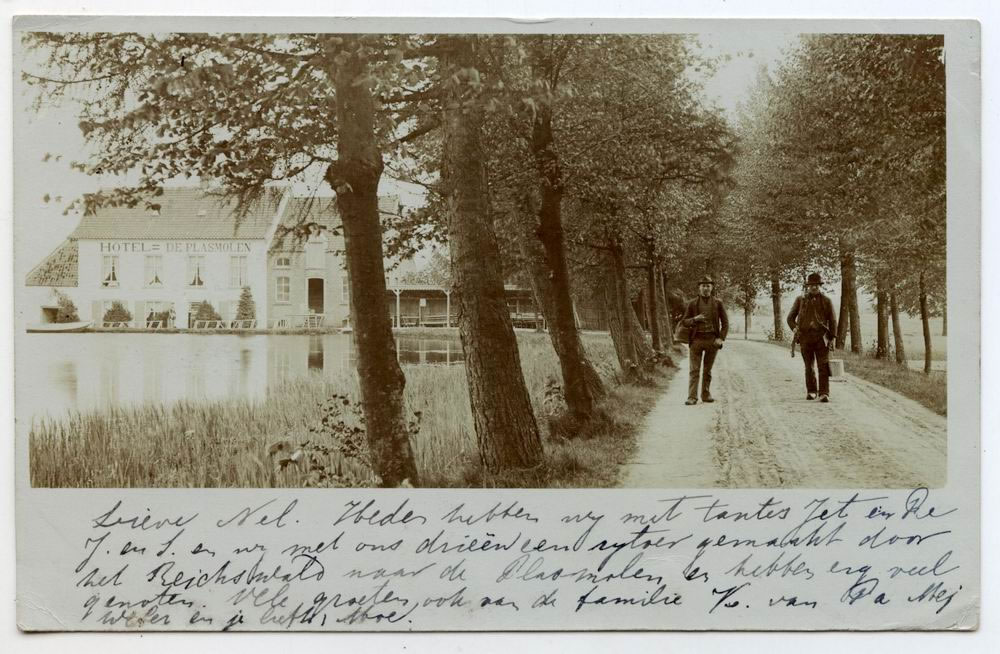 HOTEL = DE PLASMOLEN
Lieve Nel. Heden hebben wij met tantes Jet en De
J. en S. en wij met ons drieën een rytoer gemaakt door
het Reichswald naar de Plasmolen en hebben erg veel
genoten. Vele groeten, ook van de familie V. van Pa Mej
Weber en je liefh. Moe.